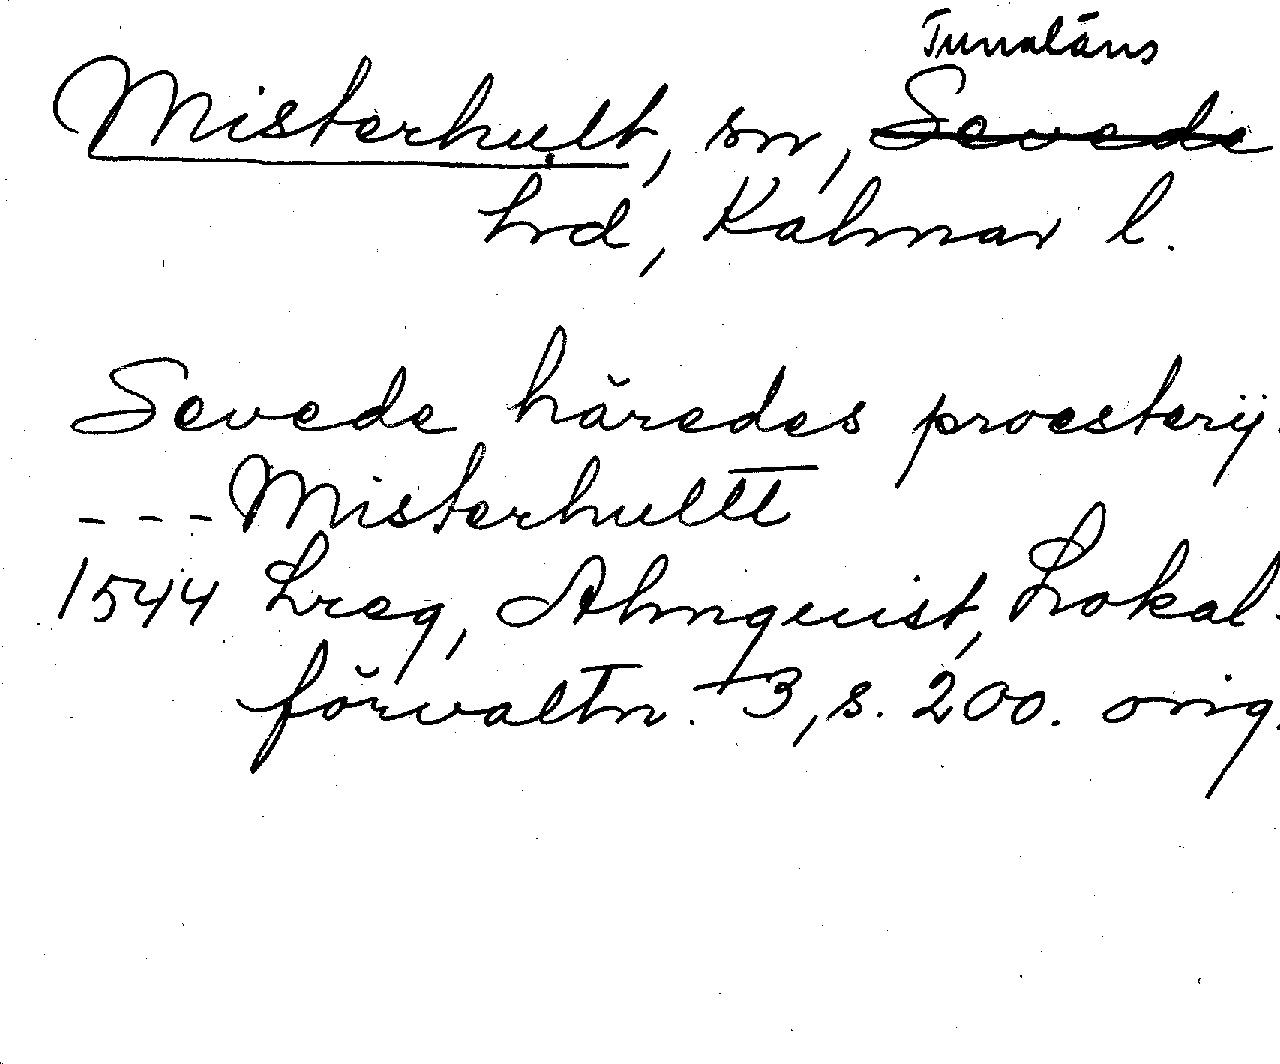 Tunaläns
Misterhult, sn, Sevede
hrd, Kalmar l.
Sevede häredes proesterij.
--- Misterhultt
1544 Lreg, Almquist, Lokal-
förvaltn. 3, s. 200. orig.